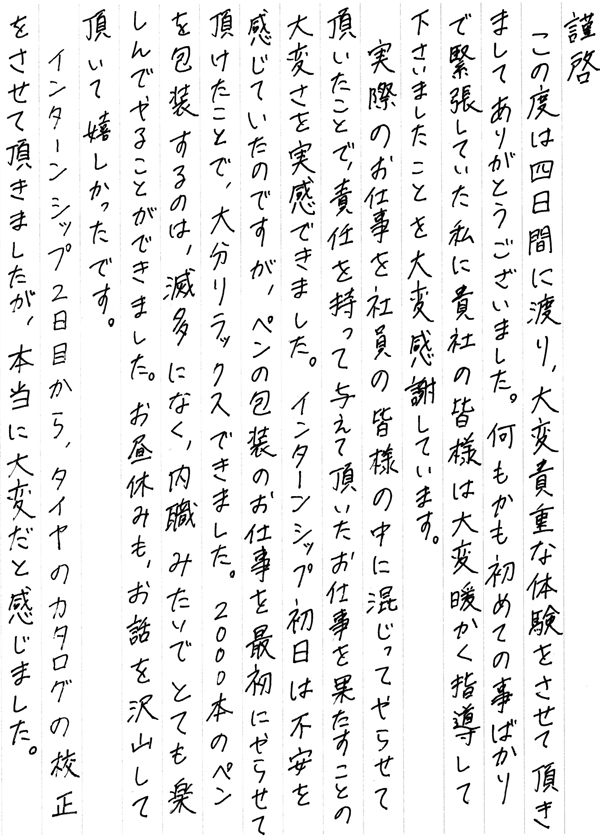 謹啓
この度は四日間に渡り、大変貴重な体験をさせて頂き
ましてありがとうございました。何もかも初めての事ばかり
で緊張していた私に貴社の皆様は大変暖かく指導して
下さいましたことを大変感謝しています。
実際のお仕事を社員の皆様の中に混じってやらせて
頂いたことで、責任を持って与えて頂いたお仕事を果たすことの
大変さを実感できました。インターンシップ初日は不安を
感じていたのですが、ペンの包装のお仕事を最初にやらせて
頂けたことで、大分リラックスできました。2000本のペン
を包装するのは、滅多になく、内職みたいでとても楽
しんでやることができました。お昼休みも、お話を沢山して
頂いて嬉しかったです。
インターンシップ2日目から、タイヤのカタログの校正
をさせて頂きましたが、本当に大変だと感じました。